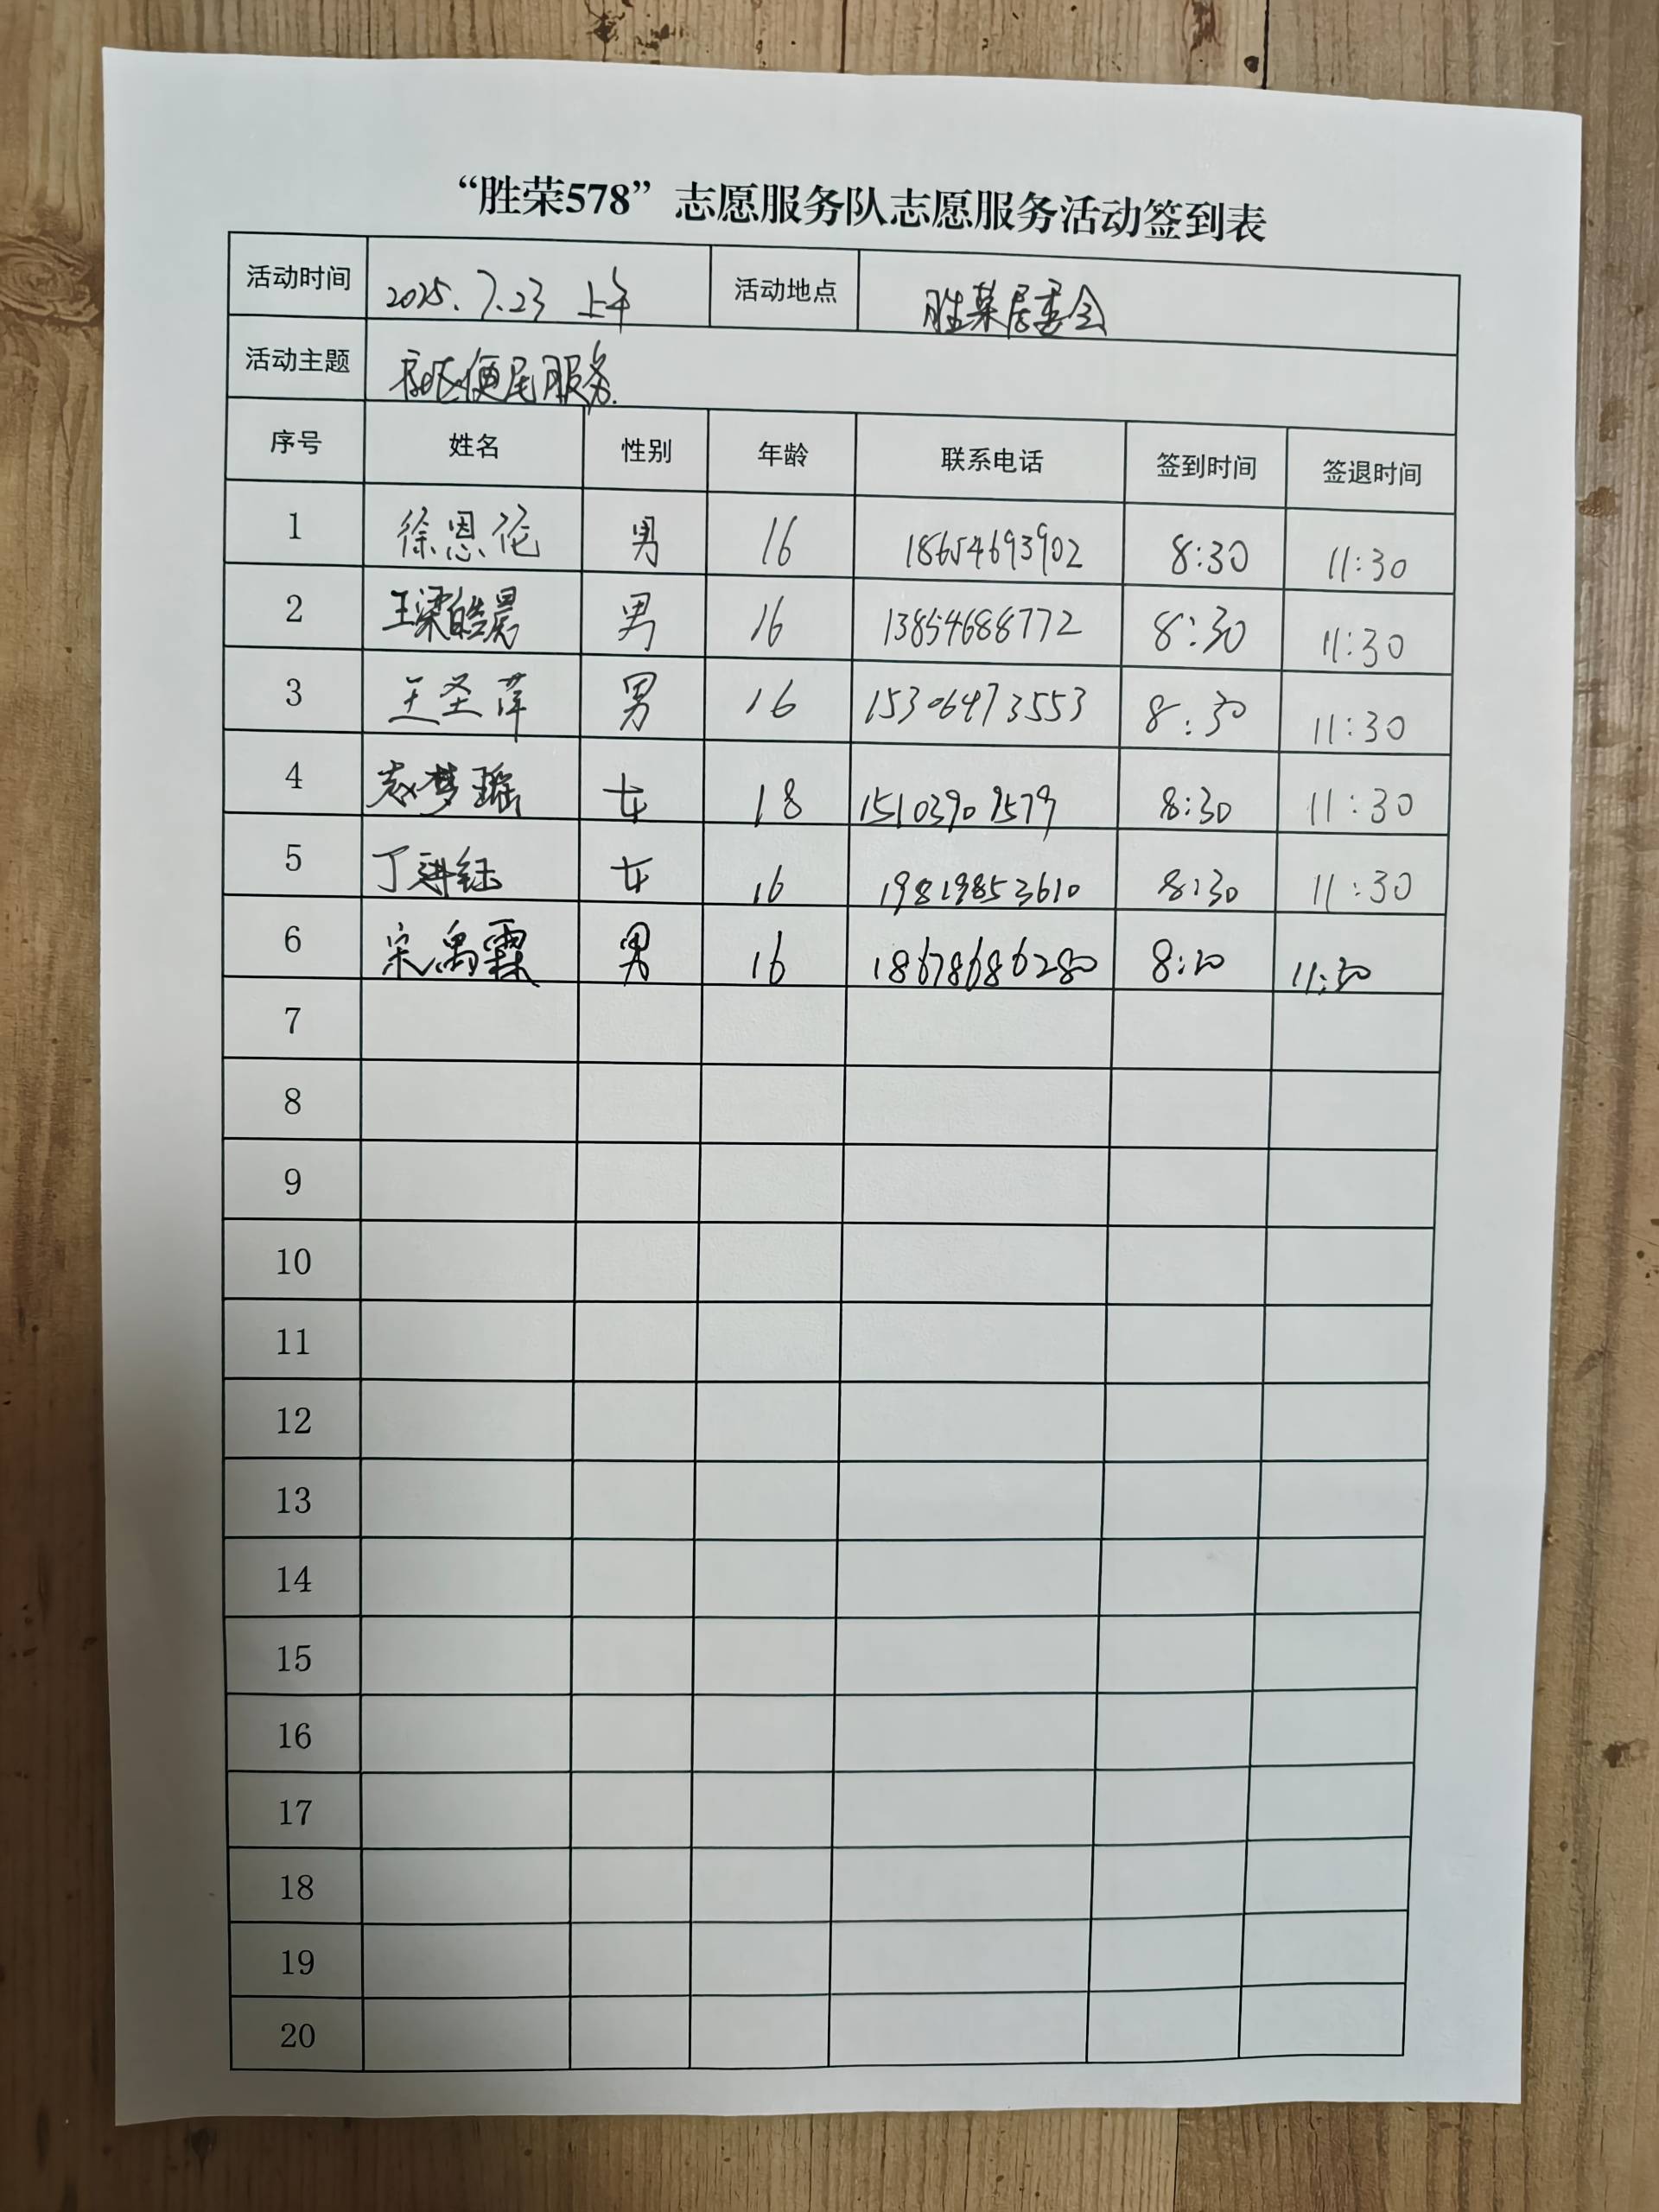 “胜荣578”志愿服务队志愿服务活动签到表
活动时间 2025.7.23 上午 活动地点 胜荣居委会
活动主题 社区便民服务.
序号 姓名 性别 年龄 联系电话 签到时间 签退时间
1 徐恩伦 男 16 18654693902 8:30 11:30
2 王梁皓晨 男 16 13854688772 8:30 11:30
3 王圣 男 16 15306473553 8:30 11:30
4 赵梦瑶 女 18 15103909579 8:30 11:30
5 丁 钰 女 16 19819853610 8:30 11:30
6 宋禹霖 男 16 18678686280 8:30 11:30
7
8
9
10
11
12
13
14
15
16
17
18
19
20